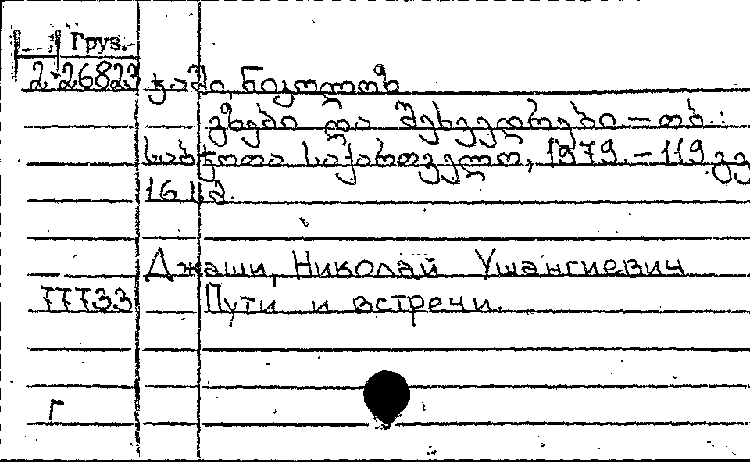 Груз.
2-26823 ჯაში, ნიკოლოზ
გზები და შეხვედრები – თბ.:
საბჭოთა საქართველო, 1979. – 119 გვ
16 სმ.
Джаши, Николай Ушангиевич
77733 Пути и встречи.
Г